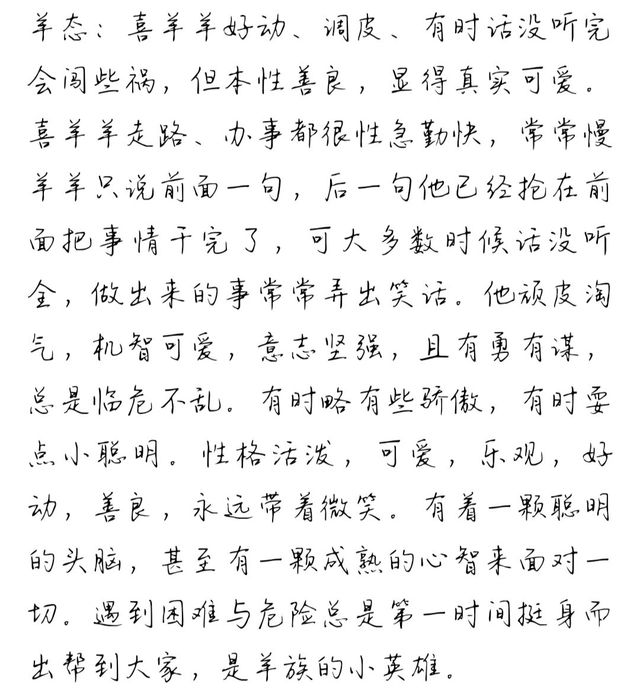 羊态：喜羊羊好动、调皮、有时话没听完
会闯些祸，但本性善良，显得真实可爱。
喜羊羊走路、办事都很性急勤快，常常慢
羊羊只说前面一句，后一句他已经抢在前
面把事情干完了，可大多数时候话没听
全，做出来的事常常弄出笑话。他顽皮淘
气，机智可爱，意志坚强，且有勇有谋，
总是临危不乱。有时略有些骄傲，有时耍
点小聪明。性格活泼，可爱，乐观，好
动，善良，永远带着微笑。有着一颗聪明
的头脑，甚至有一颗成熟的心智来面对一
切。遇到困难与危险总是第一时间挺身而
出帮到大家，是羊族的小英雄。